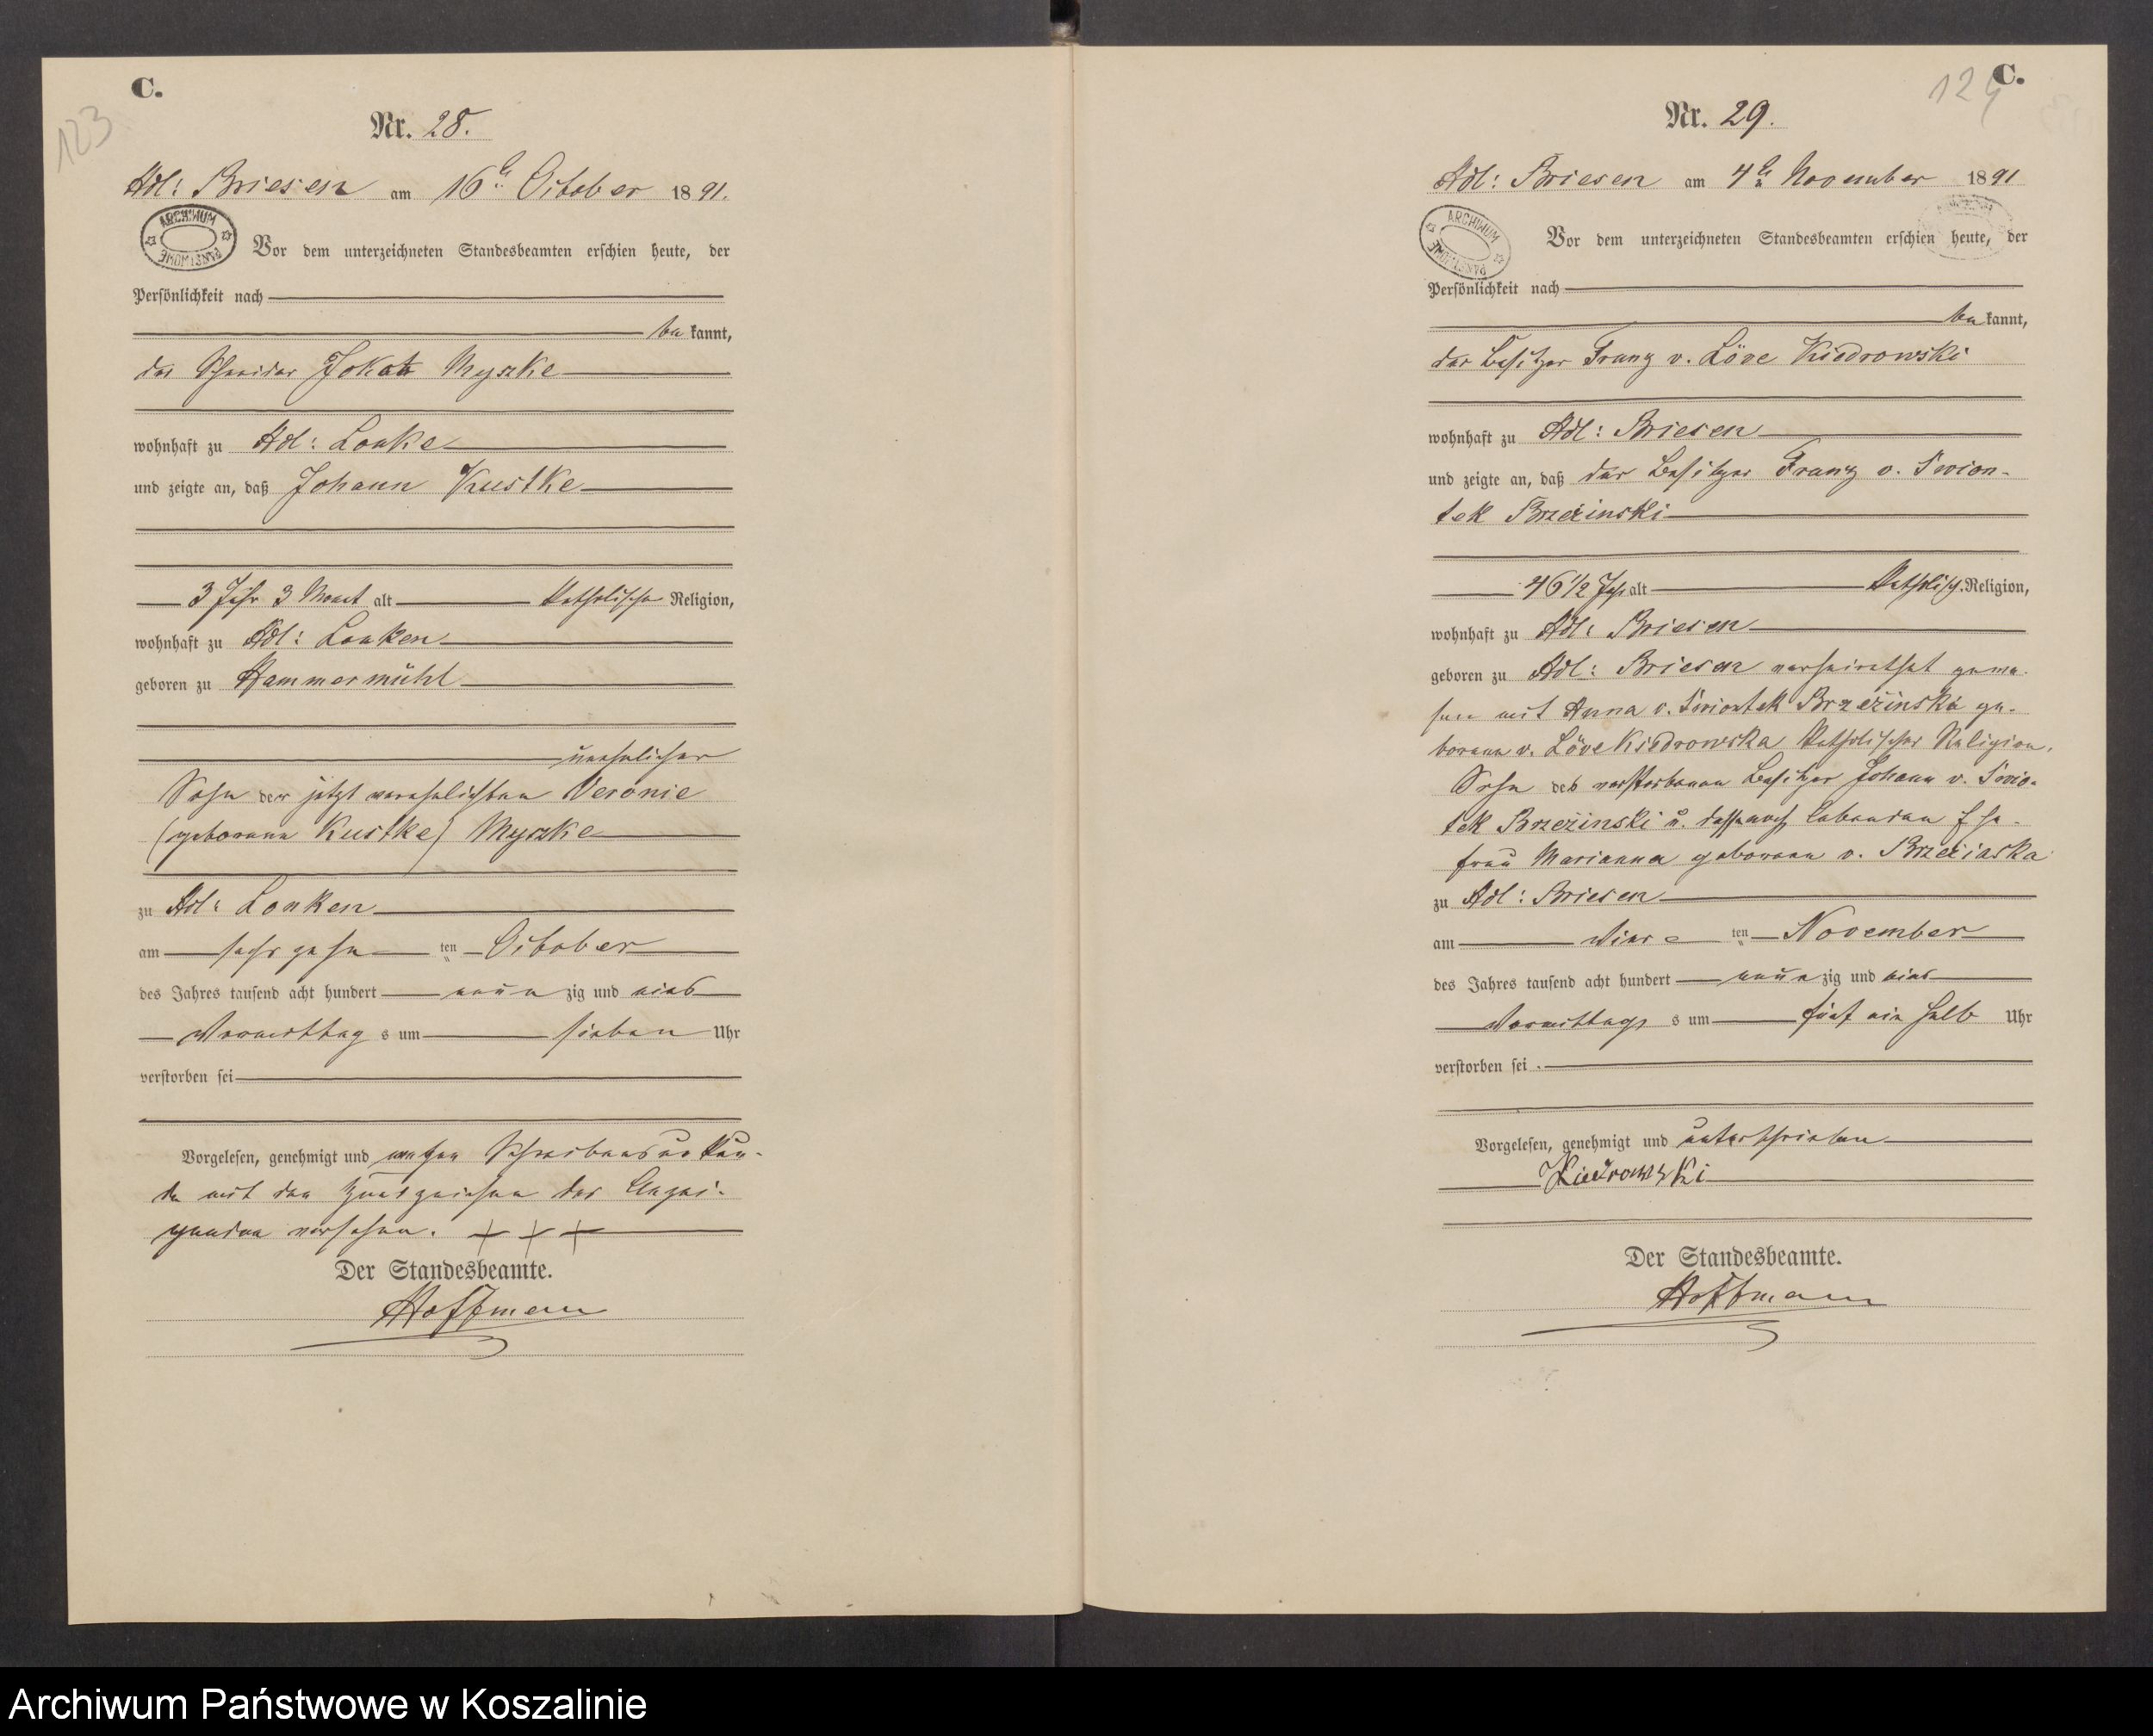 C.
123
Nr. 28.
Adl: Briesen am 16ten October 1891.
ARCHIWUM PAŃSTWOWE
Vor dem unterzeichneten Standesbeamten erschien heute, der
Persönlichkeit nach
be kannt,
der Schneider Jokob Myszke
wohnhaft zu Adl: Lonke
und zeigte an, daß Johann Kustke
3 Jahr 3 Monat alt Katholischer Religion,
wohnhaft zu Adl: Lonken
geboren zu Hammermühl
unehelicher
Sohn der jetzt verehelichten Veronie
(geborenen Kustke) Myszke
zu Adl: Lonken
am sechszehn ten October
des Jahres tausend acht hundert neun zig und eins
Vormittag s um sieben Uhr
verstorben sei
Vorgelesen, genehmigt und wegen Schreibensunkun-
de mit den Handzeichen des Anzei-
genden versehen. + + +
Der Standesbeamte.
Hoffmann
C.
124
Nr. 29.
Adl: Briesen am 4ten November 1891
ARCHIWUM PAŃSTWOWE
Vor dem unterzeichneten Standesbeamten erschien heute, der
Persönlichkeit nach
be kannt,
der Besitzer Franz v. Löve Kiedrowski
wohnhaft zu Adl: Briesen
und zeigte an, daß der Besitzer Franz v. Swion-
tek Brzeżinski
46 1/2 Jahr alt Katholisch. Religion,
wohnhaft zu Adl: Briesen
geboren zu Adl: Briesen verheirathet gewe-
sen mit Anna v. Swiontek Brzeżinska ge-
borene v. Löve Kiedrowska Katholischer Religion,
Sohn des verstorbenen Besitzer Johann v. Swio-
tek Brzeżinski u. dessen noch lebenden Ehe-
frau Marianna geborene v. Brzeżinska
zu Adl: Briesen
am Vier ten November
des Jahres tausend acht hundert neun zig und eins
Vormittags s um fünf ein halb Uhr
verstorben sei.
Vorgelesen, genehmigt und unterschrieben
Kiedrowski
Der Standesbeamte.
Hoffmann
Archiwum Państwowe w Koszalinie